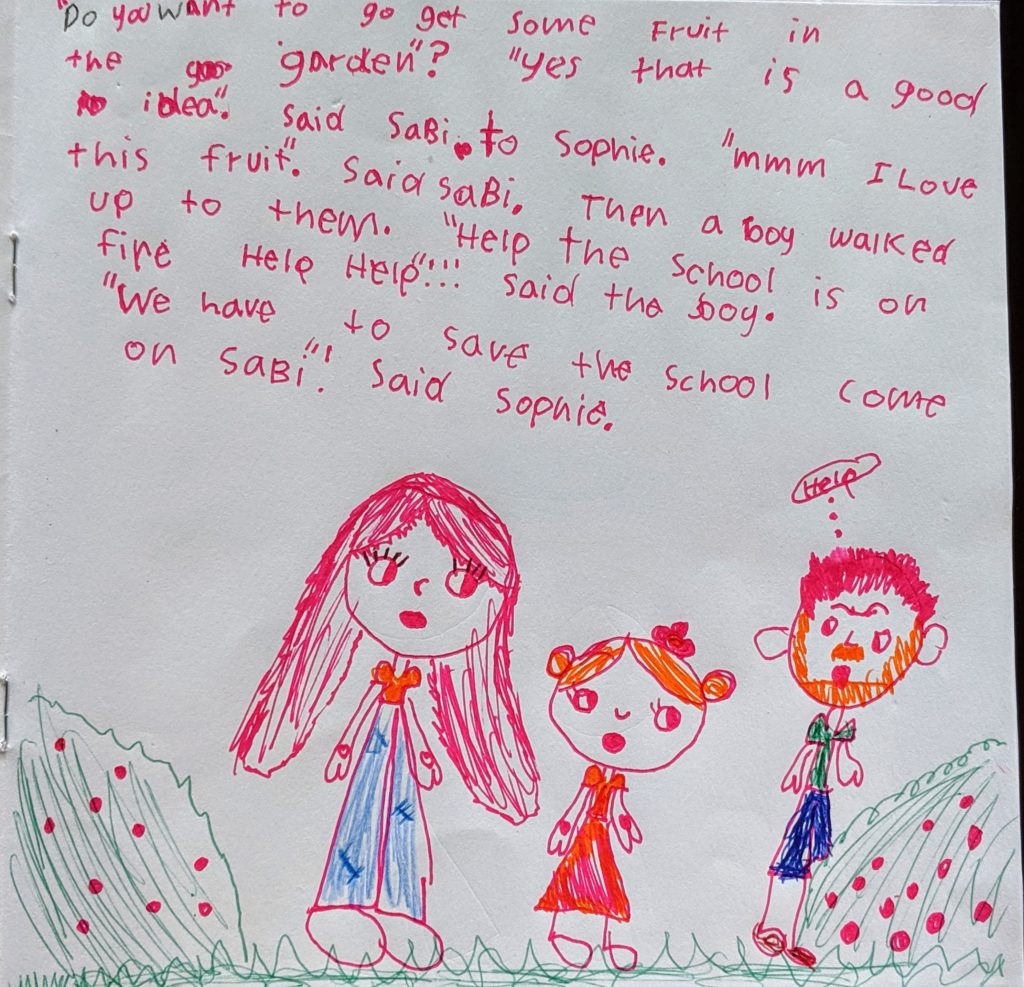 "Do you want to go get some Fruit in
the garden"? "yes that is a good
idea". said SaBi. to Sophie. "mmm I Love
this fruit". Said SaBi, Then a boy walked
up to them. "Help the school is on
fire Help Help"!!! said the boy.
"We have to save the school come
on SaBi"! said Sophie.
Help